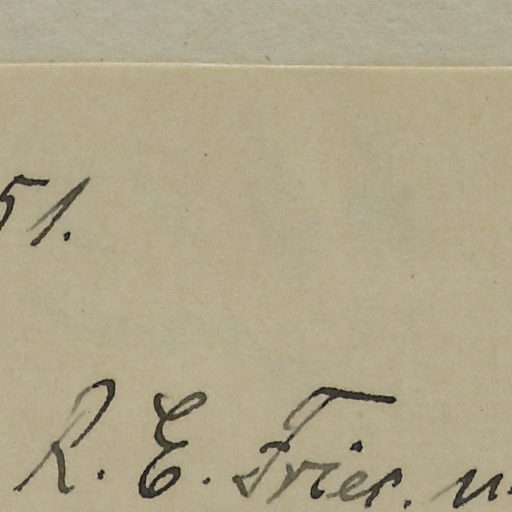 51.
R. E. Fries. n.